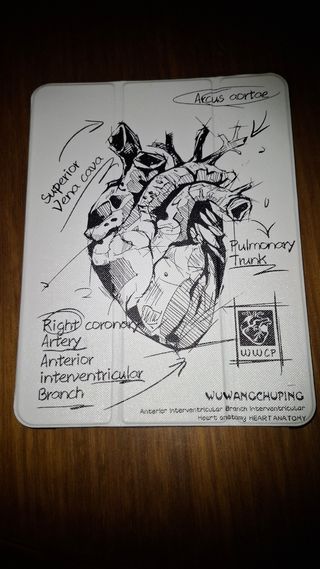 Arcus aortae
Superior
Vena cava
Pulmonary
Trunk
Right coronary
Artery
Anterior
interventricular
Branch
WWCP
WUWANGCHUPING
Anterior Interventricular Branch Interventricular
Heart anatomy HEART ANATOMY